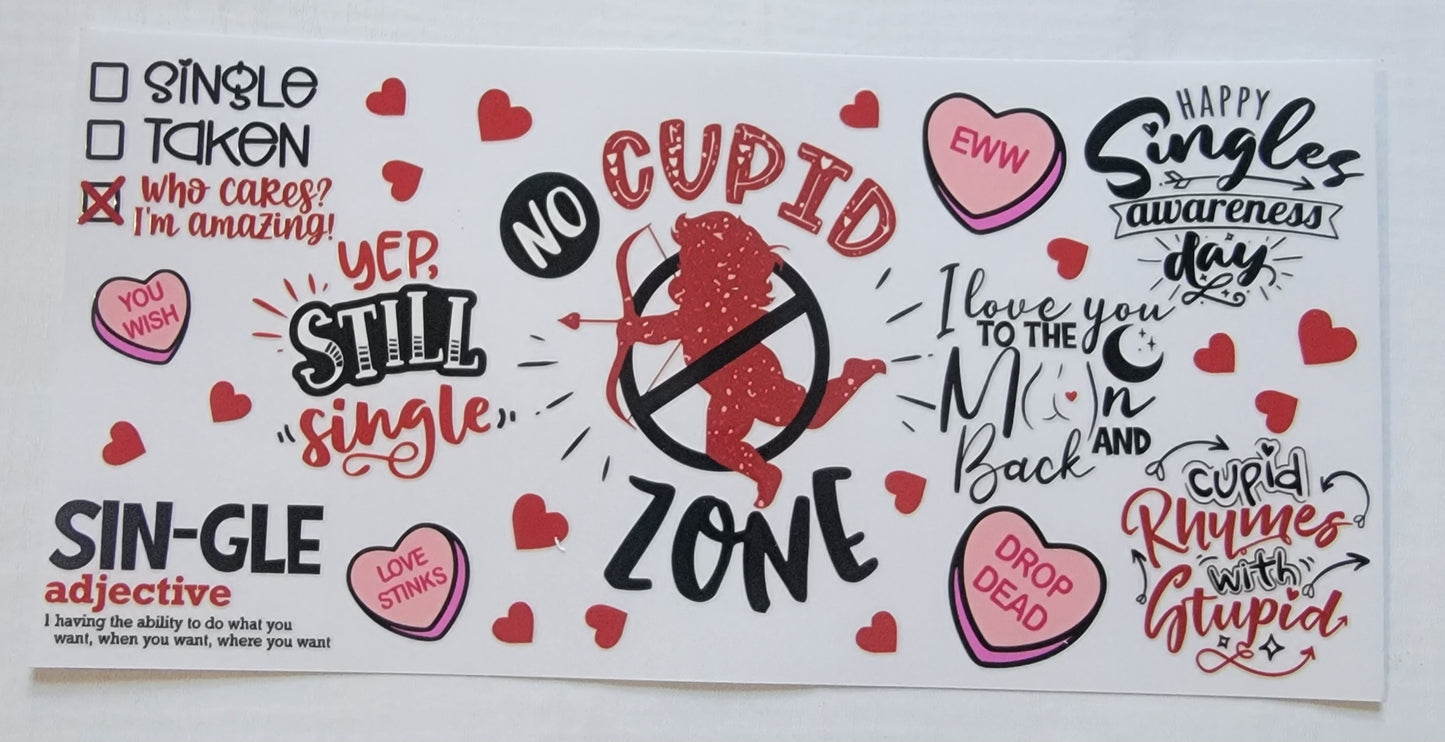 SINGLE
TAKEN
WHO CARES?
I'm amazing!
YOU
WISH
YEP,
STILL
single
SIN-GLE
adjective
1 having the ability to do what you
want, when you want, where you want
LOVE
STINKS
NO
CUPID
ZONE
EWW
HAPPY
Singles
awareness
day
I love you
TO THE
Moon
AND
Back
DROP
DEAD
cupid
Rhymes
with
Stupid